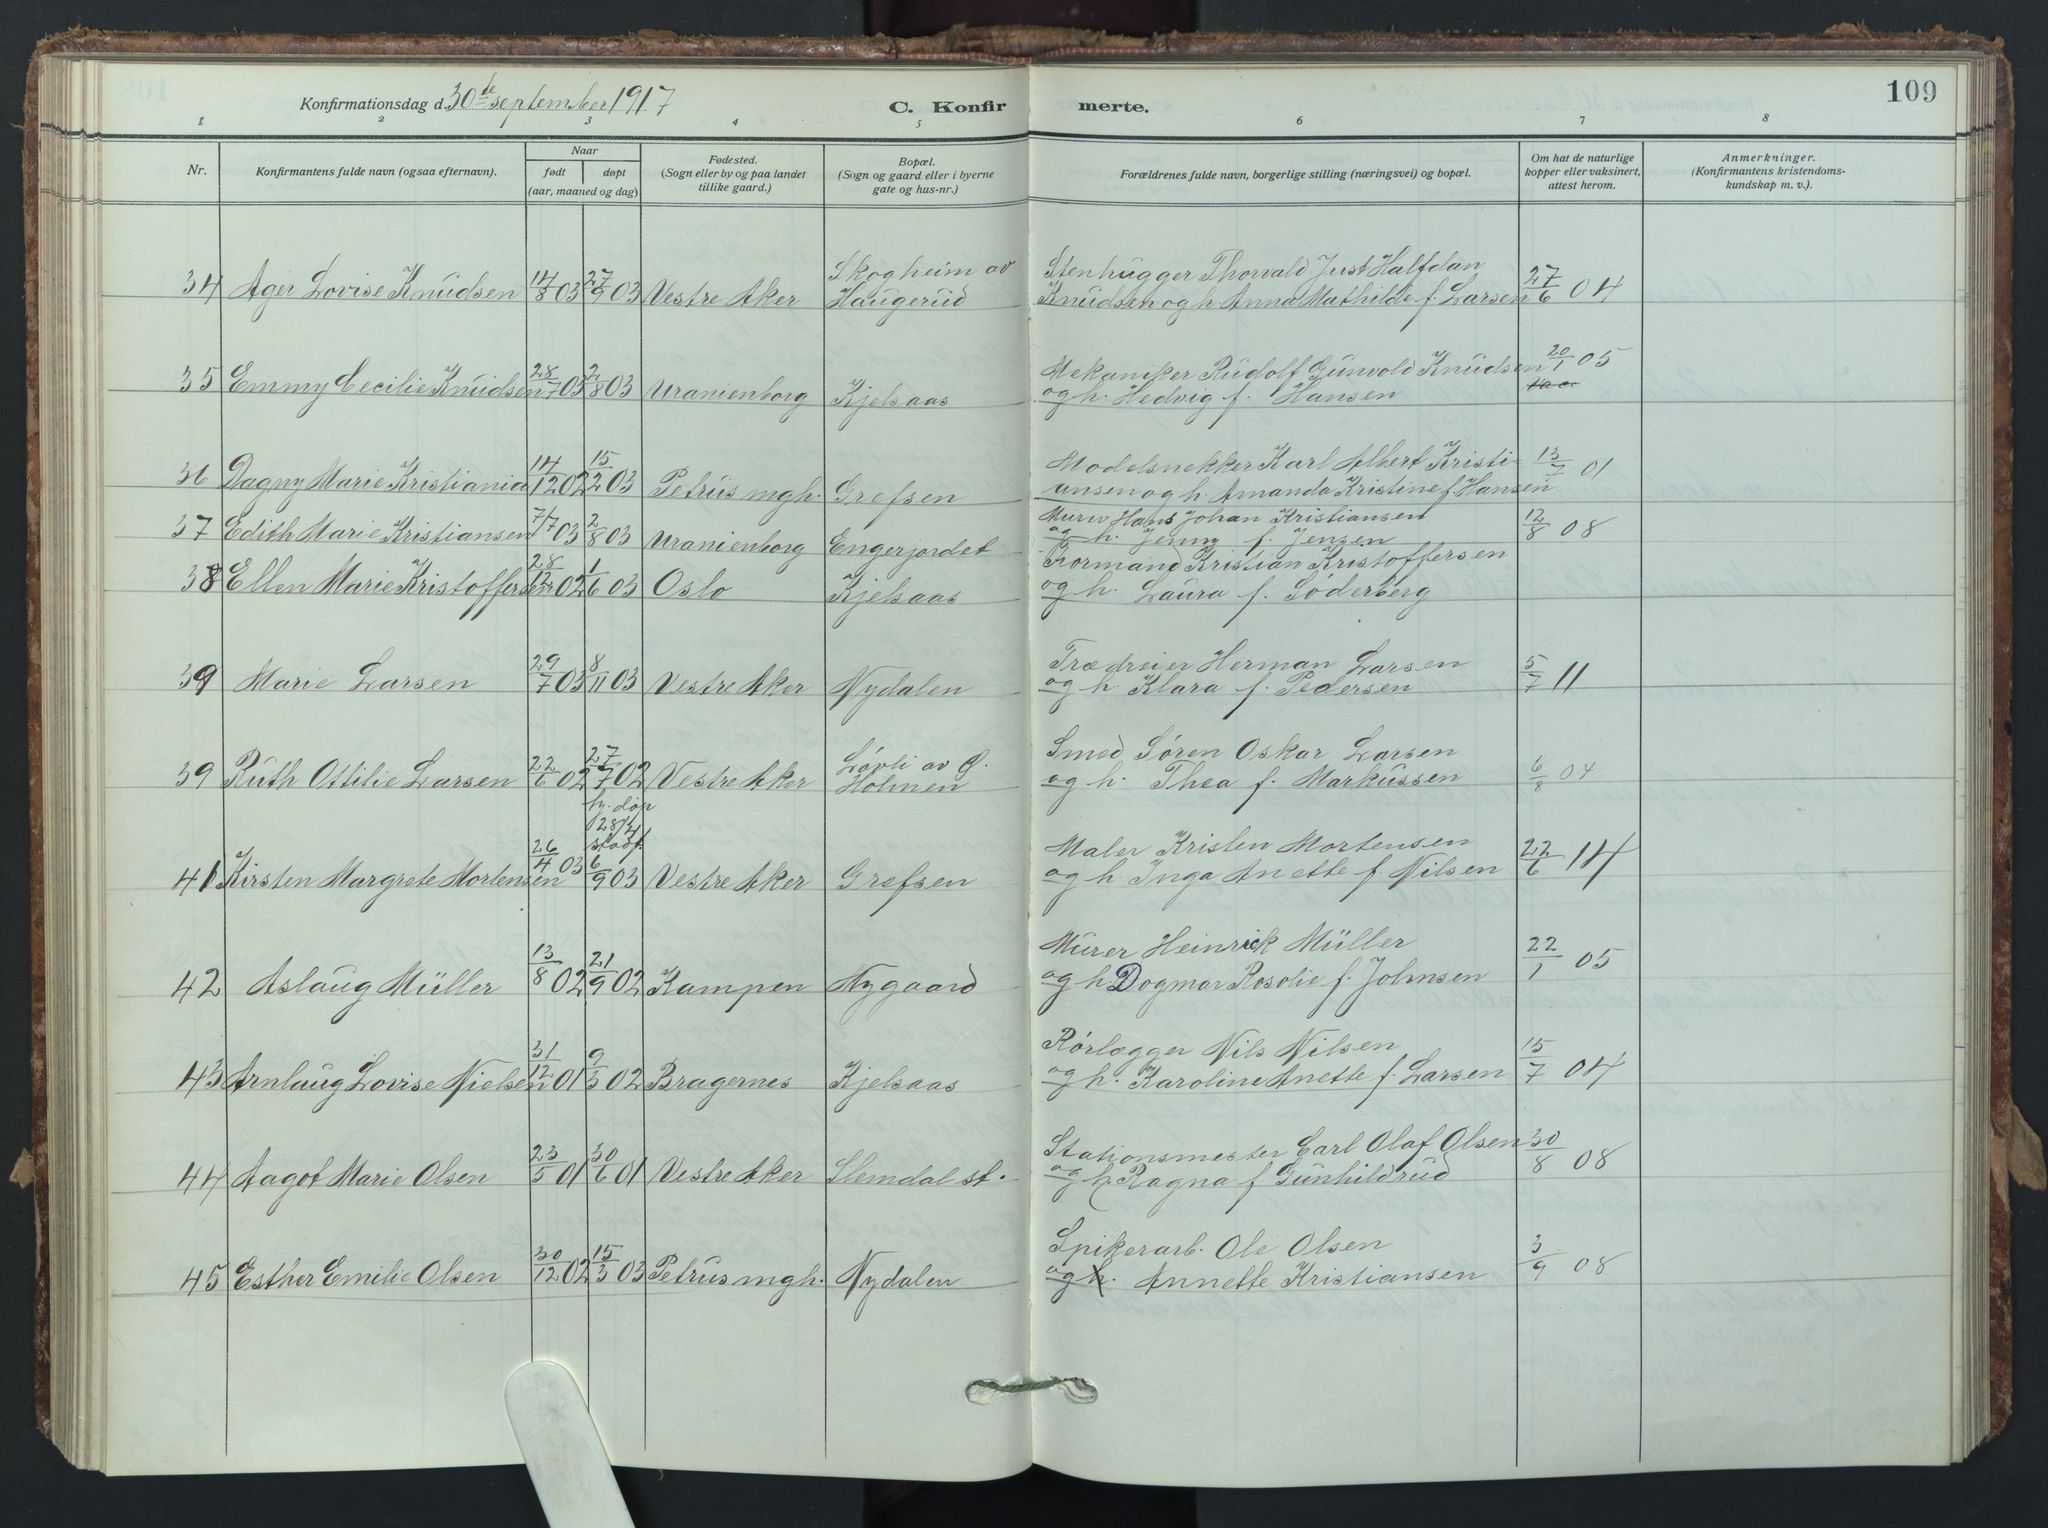 Konfirmationsdag d. 30de september 1917 C. Konfirmerte. 109
1 2 3 4 5 6 7 8
Nr. Konfirmantens fulde navn (ogsaa efternavn). Naar født døpt (aar, maaned og dag) Fødested. (Sogn eller by og paa landet tillike gaard.) Bopæl. (Sogn og gaard eller i byerne gate og hus-nr.) Forældrenes fulde navn, borgerlige stilling (næringsvei) og bopæl. Om hat de naturlige kopper eller vaksinert, attest herom. Anmerkninger. (Konfirmantens kristendomskundskap m. v.).
Skogheim av Stenhugger Thorvald Just Halfdan
34 Ager Lovise Knudsen 14/8 03 27/9 03 Vestre Aker Haugerud Knudsen og h. Anna Mathilde f. Larsen 27/6 04
Mekaniker Rudolf Gunvold Knudsen 20/1 05
35 Emmy Cecilie Knudsen 28/7 03 2/8 03 Uranienborg Kjelsaas og h. Hedvig f. Hansen
Modelsnekker Karl Albert Kristi-
36 Dagny Marie Kristiania 14/12 02 15/2 03 Petrus mgh. Grefsen ansen og h. Amanda Kristine f. Hansen 13/7 01
Murer Hans Johan Kristiansen
37 Edith Marie Kristiansen 7/7 03 2/8 03 Uranienborg Engerjordet og h. Jenny f. Jensen 12/8 08
Formand Kristian Kristoffersen
38 Ellen Marie Kristoffersen 28/12 02 1/6 03 Oslo Kjelsaas og h. Laura f. Søderberg
Trædreier Herman Larsen
39 Marie Larsen 29/7 03 8/11 03 Vestre Aker Nydalen og h. Klara f. Pedersen 5/7 11
Løvli av Ø. Smed Søren Oskar Larsen
39 Ruth Ottilie Larsen 22/6 02 27/7 02 Vestre Aker Holmen og h. Thea f. Markussen 6/8 04
hj. døp
28/4
stadf. Maler Kristen Mortensen
41 Kirsten Margrete Mortensen 26/4 03 6/9 03 Vestre Aker Grefsen og h. Inga Anette f. Nilsen 22/6 14
Murer Heinrick Müller
42 Aslaug Müller 13/8 02 21/9 02 Kampen Nygaard og h. Dogmar Rosolie f. Johnsen 22/1 05
Rørlægger Nils Nilsen
43 Arnlaug Lovise Nielsen 31/12 01 9/3 02 Bragernes Kjelsaas og h. Karoline Anette f. Larsen 15/7 04
Stationsmester Carl Olaf Olsen
44 Aagot Marie Olsen 23/5 01 30/6 01 Vestre Aker Slemdal st. og h. Ragna f. Gunhildrud 30/8 08
Spikerarb. Ole Olsen
45 Esther Emilie Olsen 30/12 02 15/3 03 Petrus mgh. Nydalen og h. Annette Kristiansen 3/9 08